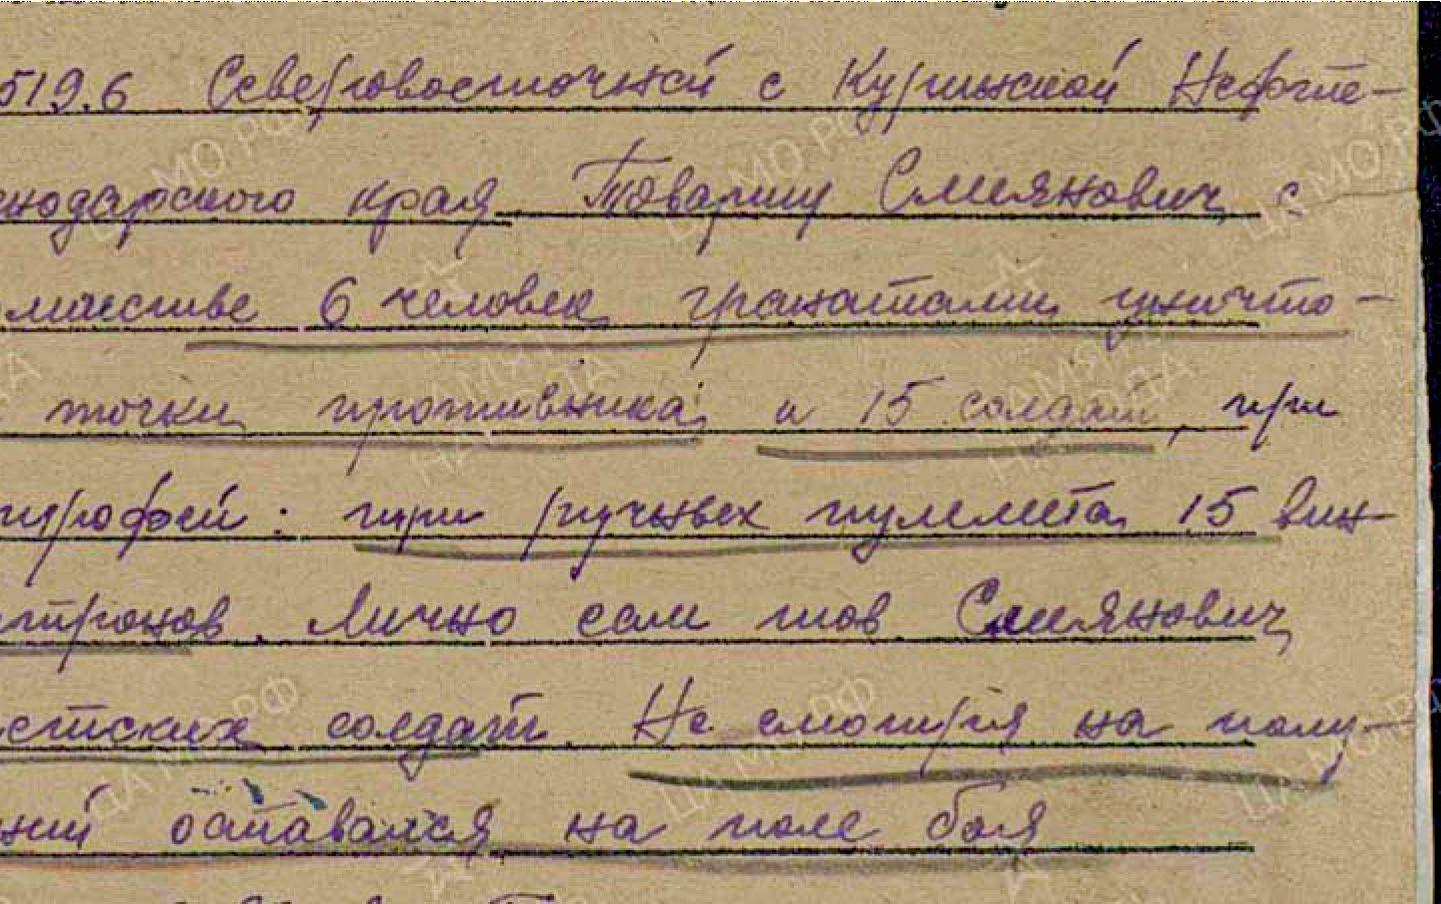 519.6 Северовосточней с Куринской Нефте-
нодарского края. Товарищ Смеянович с
личестве 6 человек гранатами уничто-
точки противника и 15 солдат, при
трофей: три ручных пулемета 15 вин-
атронов. Лично сам тов Смеянович
стских солдат. Не смотря на полу-
ний оставался на поле боя